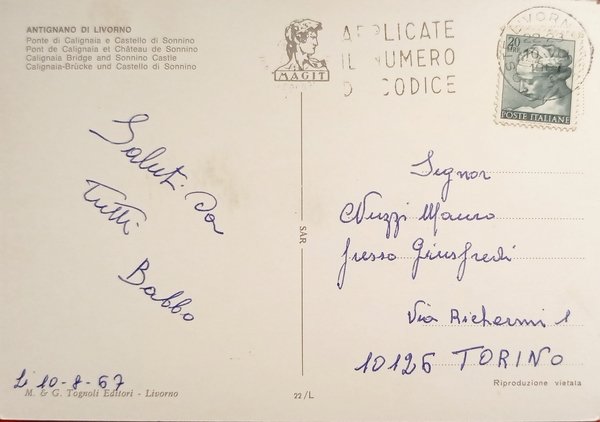 ANTIGNANO DI LIVORNO
Ponte di Calignaia e Castello di Sonnino
Pont de Calignaia et Château de Sonnino
Calignaia Bridge and Sonnino Castle
Calignaia-Brücke und Castello di Sonnino
MAGIT
APPLICATE
IL NUMERO
DI CODICE
LIVORNO
20
POSTE ITALIANE
Saluti Da
Tutti
Babbo
Li 10-8-67
Signor
Nuzzi Mauro
presso Giusfredi
Via Richermi 1
10126 TORINO
SAR
M. & G. Tognoli Editori - Livorno
22/L
Riproduzione vietata